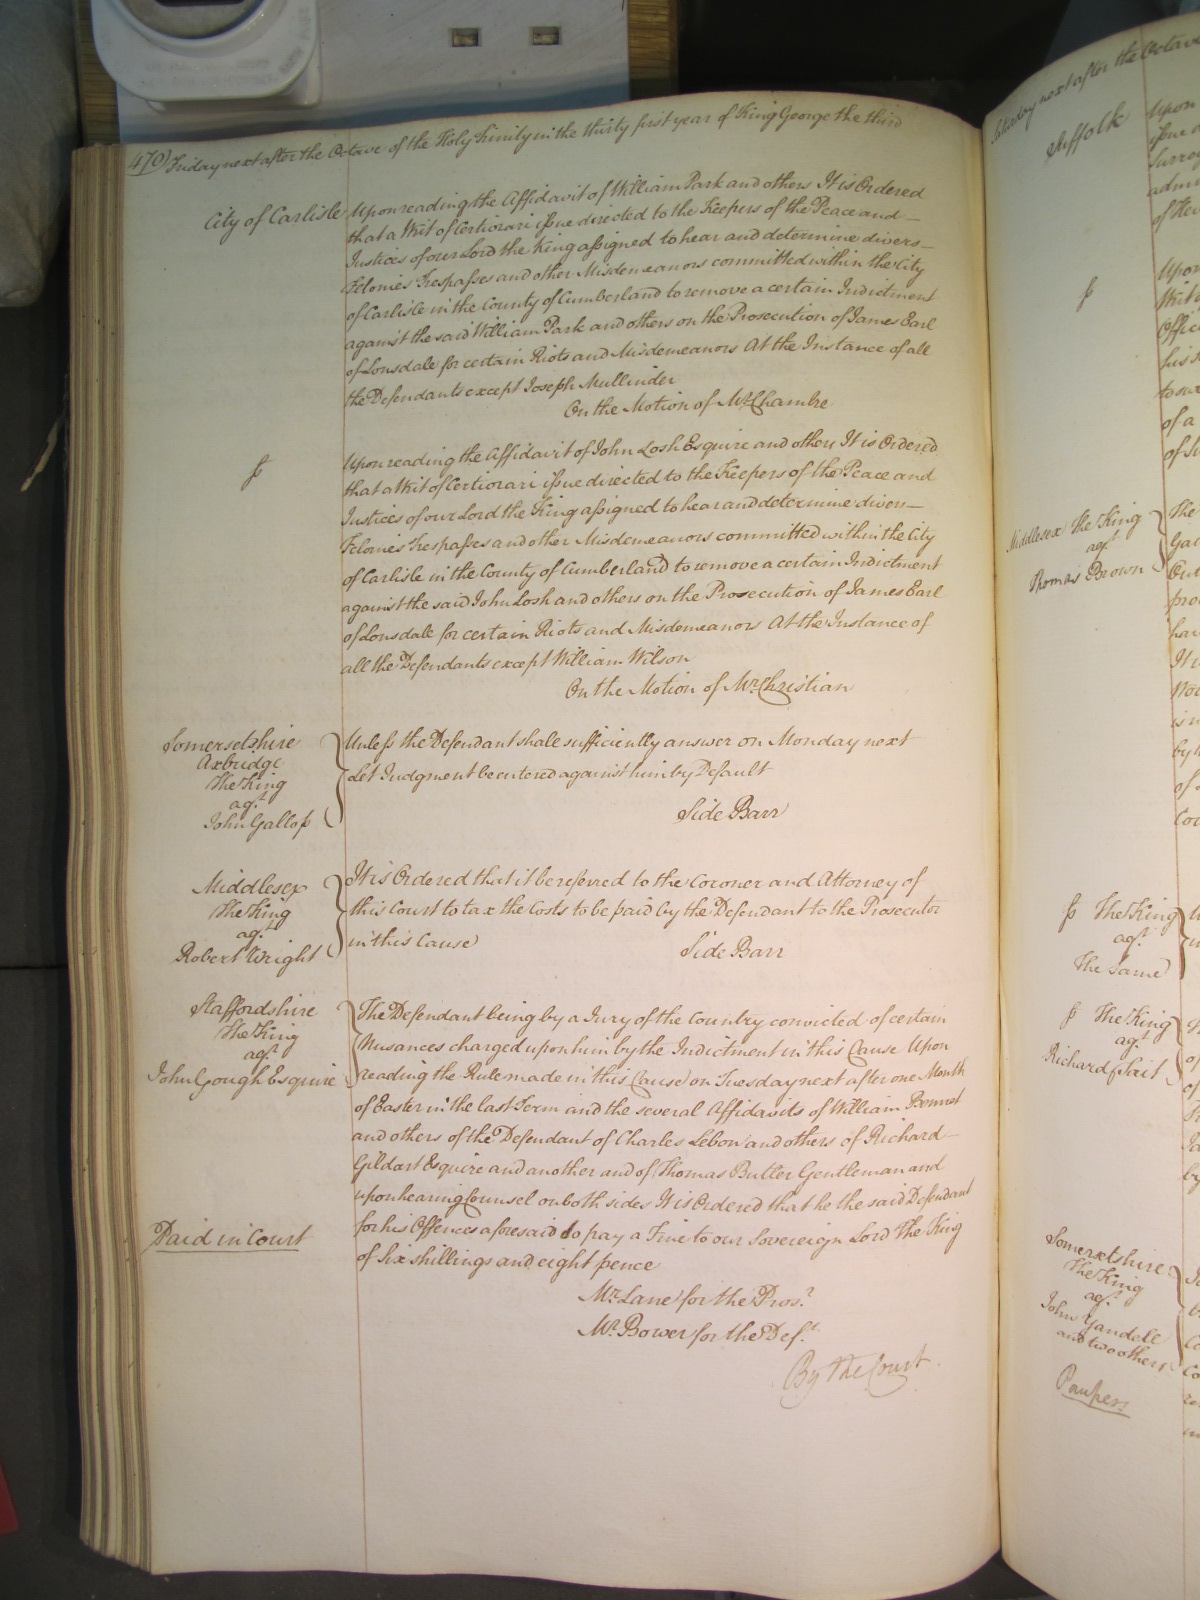 470) Friday next after the Octave of the Holy Trinity in the thirty first year of King George the third
City of Carlisle
Upon reading the Affidavit of William Park and others It is Ordered
that a Writ of Certiorari issue directed to the Keepers of the Peace and
Justices of our Lord the King assigned to hear and determine divers
Felonies Trespasses and other Misdemeanors committed within the City
of Carlisle in the County of Cumberland to remove a certain Indictment
against the said William Park and others on the Prosecution of James Earl
of Lonsdale for certain Riots and Misdemeanors At the Instance of all
the Defendants except Joseph Mullinder
On the Motion of Mr. Chambre
Upon reading the Affidavit of John Losh Esquire and others It is Ordered
that a Writ of Certiorari issue directed to the Keepers of the Peace and
Justices of our Lord the King assigned to hear and determine divers
Felonies Trespasses and other Misdemeanors committed within the City
of Carlisle in the County of Cumberland to remove a certain Indictment
against the said John Losh and others on the Prosecution of James Earl
of Lonsdale for certain Riots and Misdemeanors At the Instance of
all the Defendants except William Wilson
On the Motion of Mr. Christian
Somersetshire
Axbridge
The King
agt.
John Gallop
Unless the Defendant shall sufficiently answer on Monday next
Let Judgment be entered against him by Default
Side Barr
Middlesex
The King
agt.
Robert Wright
It is Ordered that it be referred to the Coroner and Attorney of
this Court to tax the Costs to be paid by the Defendant to the Prosecutor
in this Cause
Side Barr
Staffordshire
The King
agt.
John Gough Esquire
The Defendant being by a Jury of the Country convicted of certain
Nusances charged upon him by the Indictment in this Cause Upon
reading the Rule made in this Cause on Tuesday next after one Month
of Easter in the last Term and the several Affidavits of William Bennet
and others of the Defendant of Charles Lebon and others of Richard
Gildart Esquire and another and of Thomas Butler Gentleman and
upon hearing Counsel on both sides It is Ordered that he the said Defendant
for his Offences aforesaid do pay a Fine to our Sovereign Lord The King
of Six shillings and eight pence
Paid in Court
Mr. Lane for the Pros.r
Mr. Bower for the Def.t
By the Court
Saturday next after the Octave
Suffolk
Upon
issue
Surrey
of
Upon
Writ
his
of a
Middlesex The King
agt.
Thomas Brown
The
The King
agt.
The Same
The King
agt.
Richard
Somersetshire
The King
agt.
John Yandell
and two others
Paupers